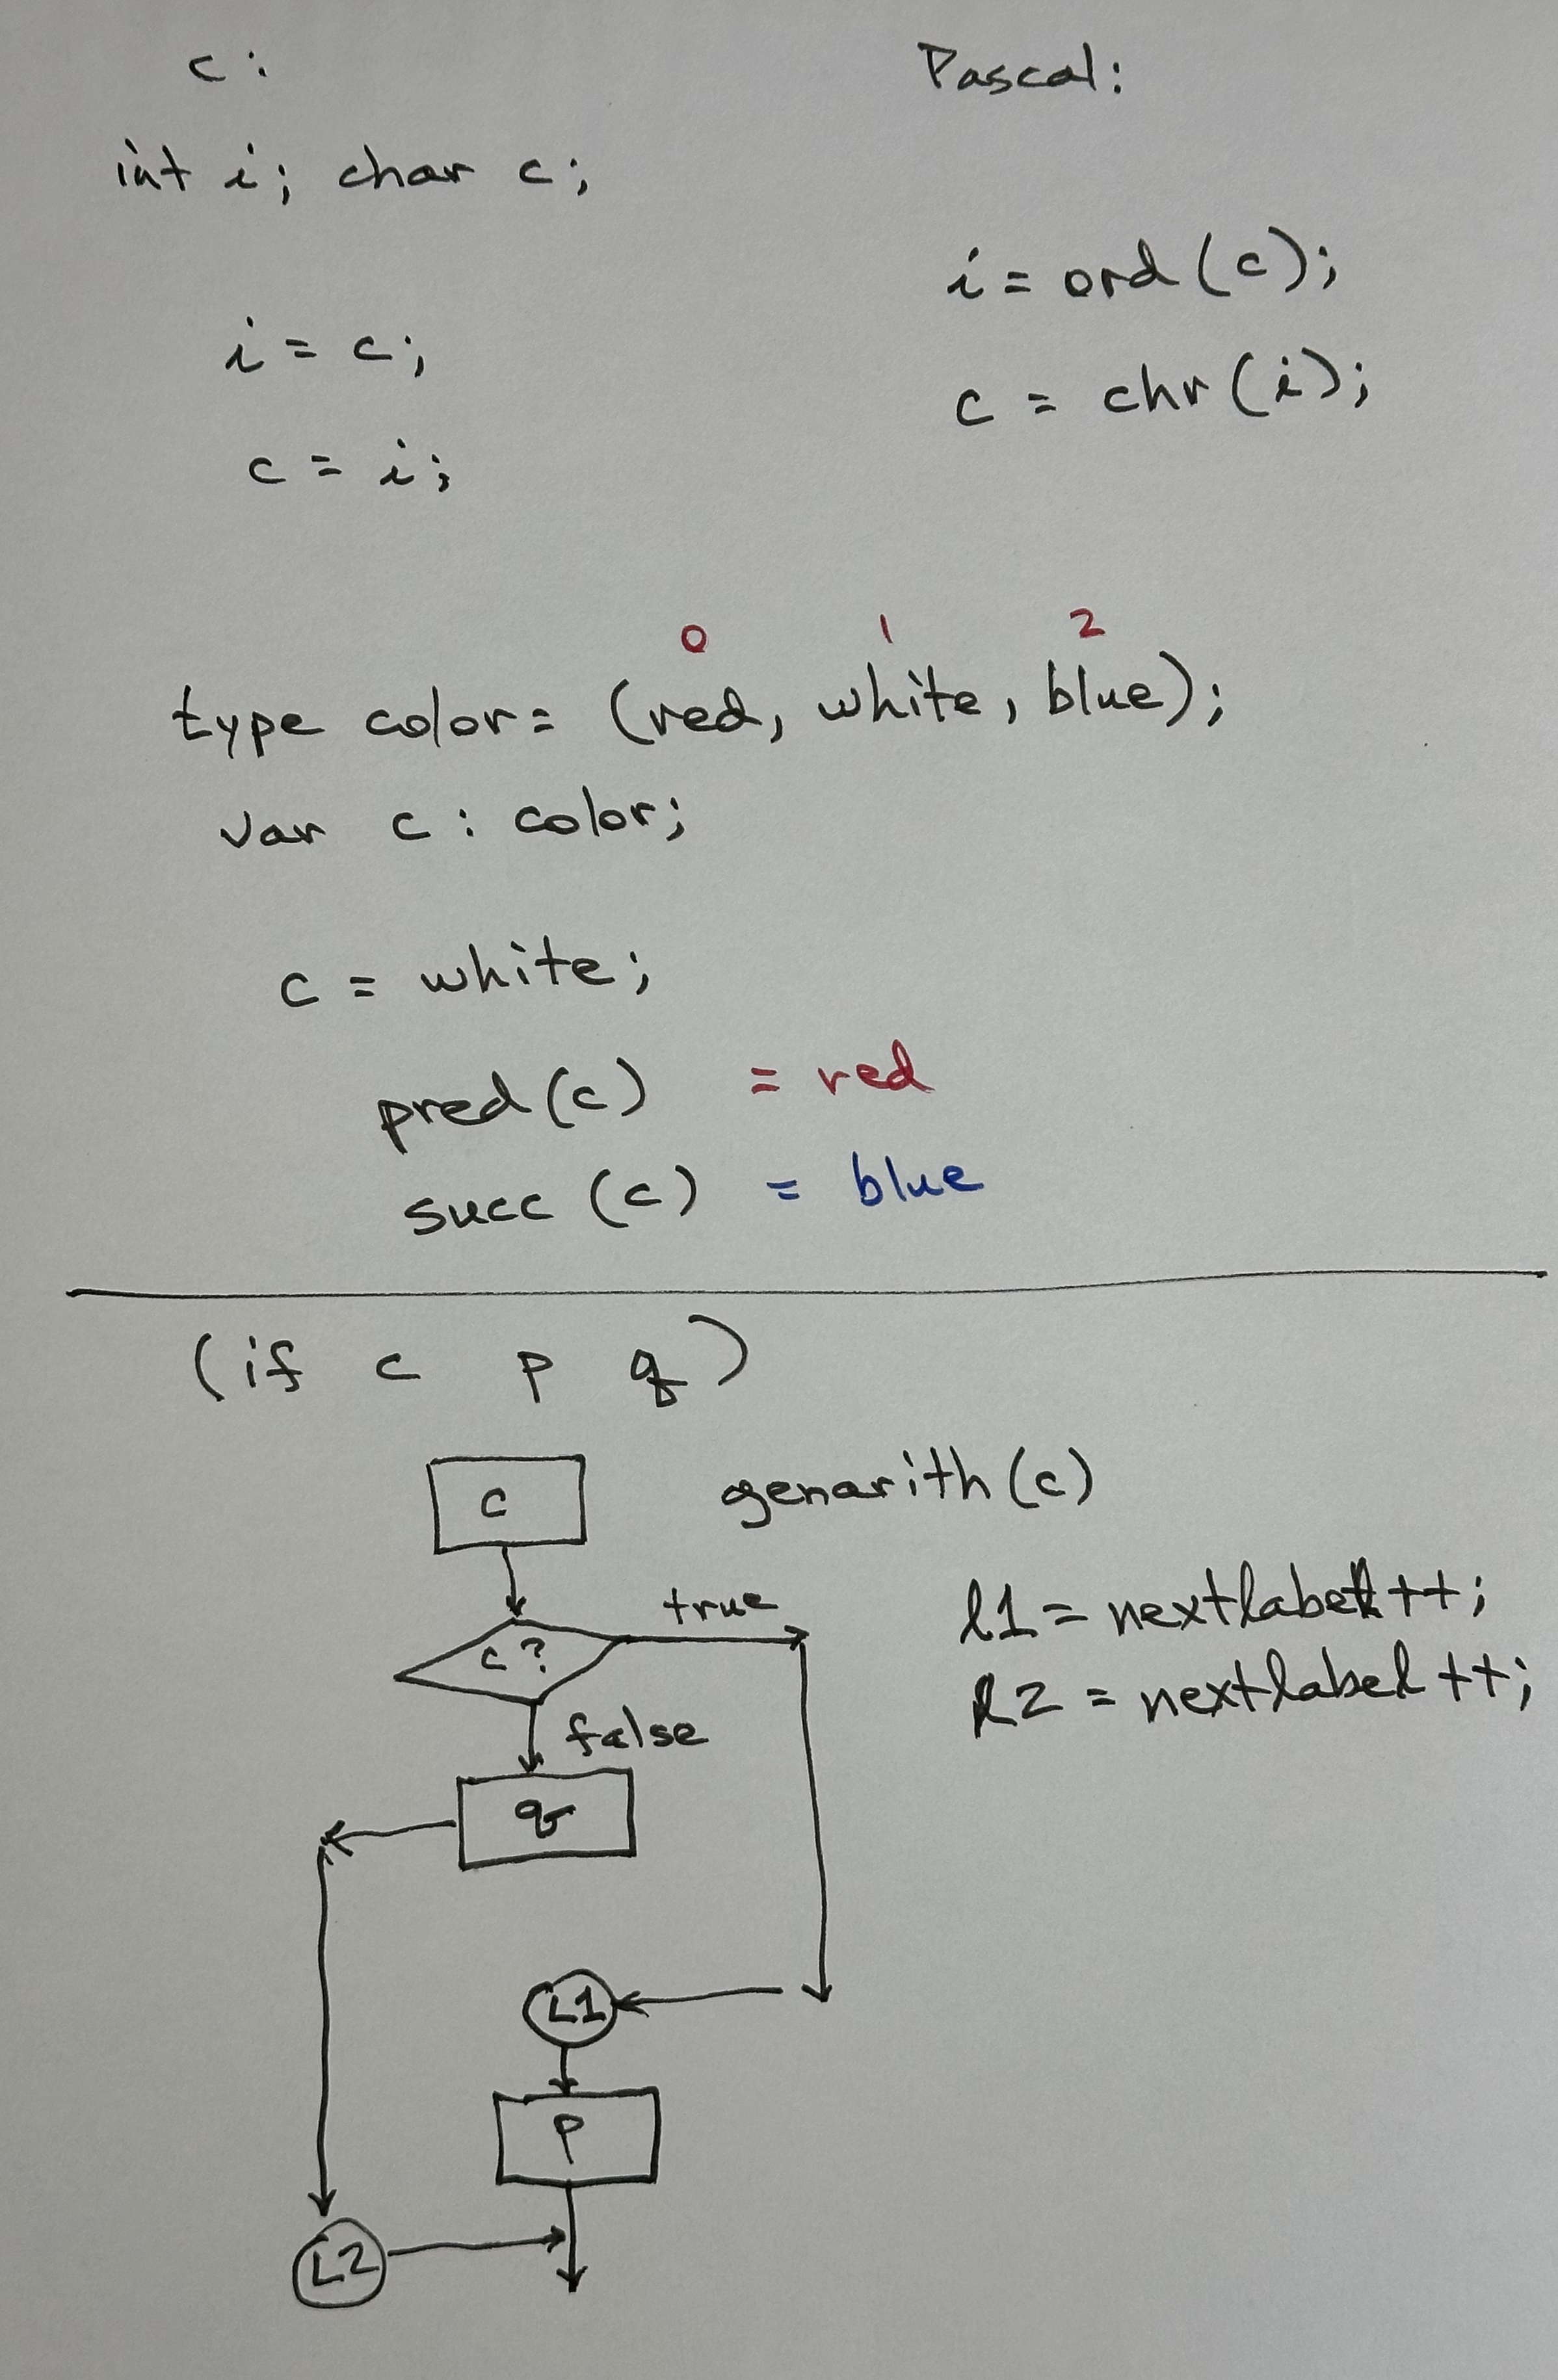 c:
Pascal:
int i; char c;
i = ord(c);
i = c;
c = chr(i);
c = i;
0 1 2
type color = (red, white, blue);
var c : color;
c = white;
pred(c) = red
succ(c) = blue
(if c p q)
c
genarith(c)
l1 = nextlabel++;
true
c?
l2 = nextlabel++;
false
q
L1
p
L2